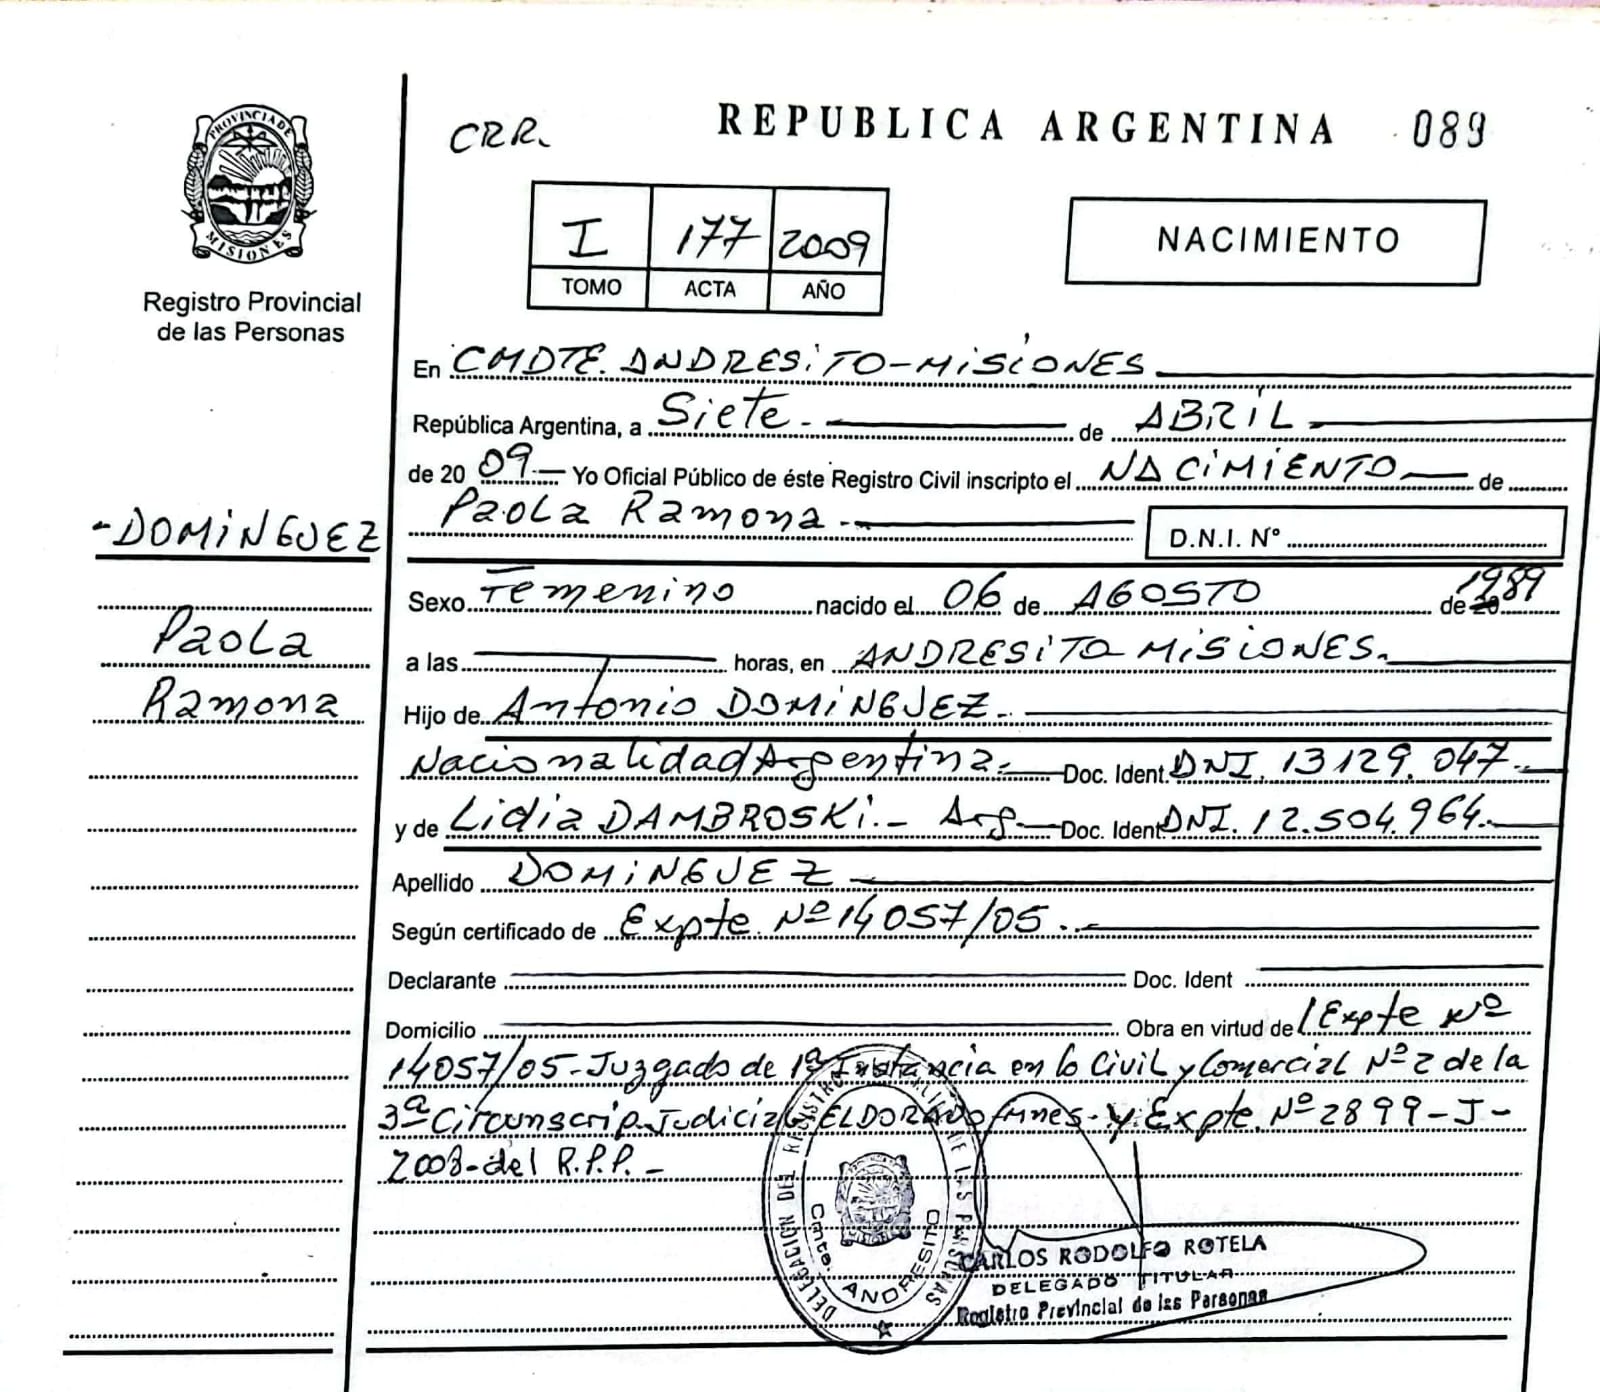 REPUBLICA ARGENTINA 089
CRR.
PROVINCIA DE
MISIONES
Registro Provincial
de las Personas
I 177 2009
TOMO ACTA AÑO
NACIMIENTO
En CMDTE. ANDRESITO-MISIONES
República Argentina, a Siete.- de ABRIL
de 20 09.- Yo Oficial Público de éste Registro Civil inscripto el NACIMIENTO de
Paola Ramona.- D.N.I. Nº
-DOMINGUEZ
Paola
Ramona
Sexo Femenino nacido el 06 de AGOSTO de 20 1989
a las horas, en ANDRESITO MISIONES.
Hijo de Antonio DOMINGUEZ.
Nacionalidad Argentina.- Doc. Ident. DNI. 13129.047.-
y de Lidia DAMBROSKI.- Arg.- Doc. Ident DNI. 12.504.964.-
Apellido DOMINGUEZ
Según certificado de Expte. Nº 14057/05.-
Declarante Doc. Ident
Domicilio Obra en virtud de/Expte Nº
14057/05-Juzgado de 1ª Instancia en lo Civil y Comercial Nº 2 de la
3ª Circunscrip. Judicial ELDORADO Mnes- y Expte. Nº 2899-J-
2008-del R.P.P.-
DELEGACION DEL REGISTRO DE LAS PERSONAS
Cmte. ANDRESITO
CARLOS RODOLFO ROTELA
DELEGADO TITULAR
Registro Provincial de las Personas